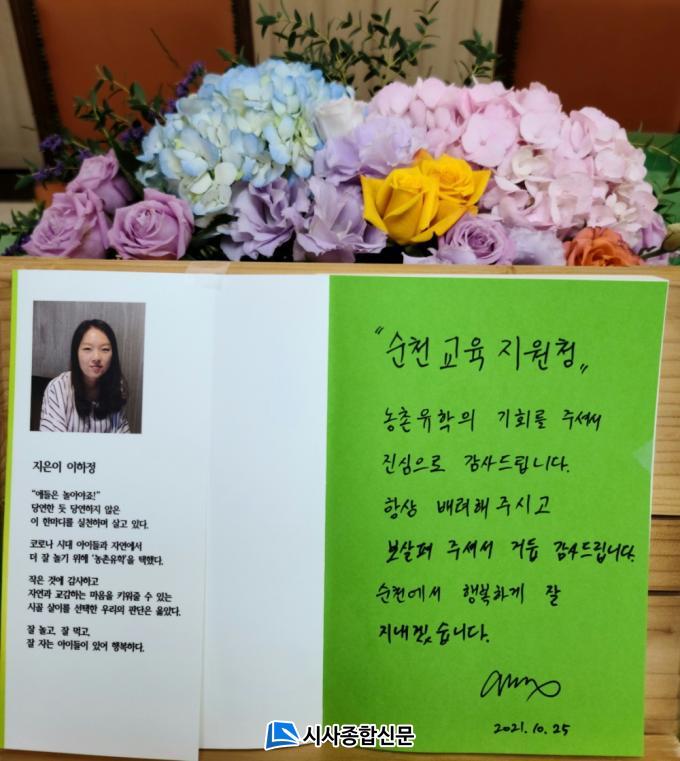 지은이 이하정
“애들은 놀아야죠!”
당연한 듯 당연하지 않은
이 한마디를 실천하며 살고 있다.
코로나 시대 아이들과 자연에서
더 잘 놀기 위해 ‘농촌유학’을 택했다.
작은 것에 감사하고
자연과 교감하는 마음을 키워줄 수 있는
시골 살이를 선택한 우리의 판단은 옳았다.
잘 놀고, 잘 먹고,
잘 자는 아이들이 있어 행복하다.
“순천 교육 지원청„
농촌유학의 기회를 주셔서
진심으로 감사드립니다.
항상 배려해 주시고
보살펴 주셔서 거듭 감사드립니다.
순천에서 행복하게 잘
지내겠습니다.
2021. 10. 25
시사종합신문